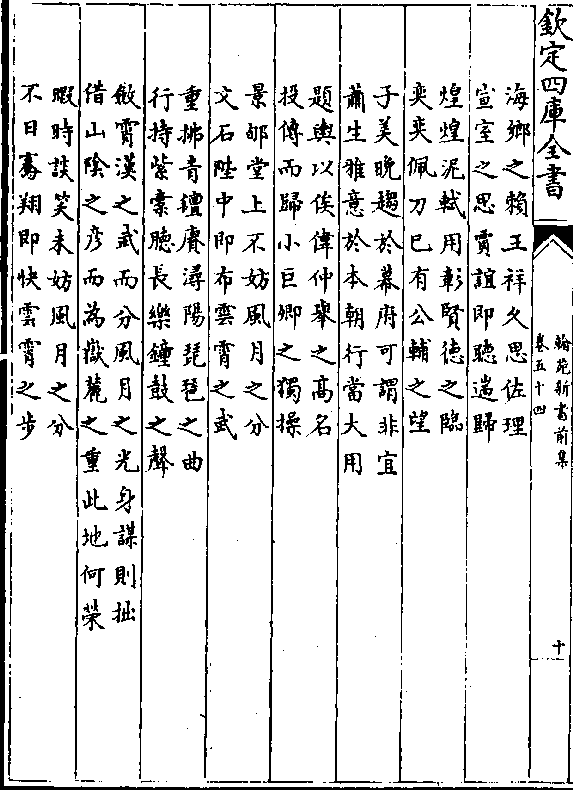 欽定四庫全書
翰苑新書前集
卷五十四
十
海鄉之賴王祥久思佐理
宣室之思賈誼即聽遄歸
煌煌泥軾用彰賢德之臨
奕奕佩刀已有公輔之望
子美晚趨於幕府可謂非宜
蕭生雅意於本朝行當大用
題輿以俟偉仲舉之高名
投傳而歸小巨卿之獨操
景邰堂上不妨風月之分
文石陛中即布雲霄之武
重拂青氊賡潯陽琵琶之曲
行持紫橐聽長樂鐘鼓之聲
斂霄漢之武而分風月之光身謀則拙
借山陰之彦而為嶽麓之重此地何榮
暇時談笑未妨風月之分
不日騫翔即快雲霄之步